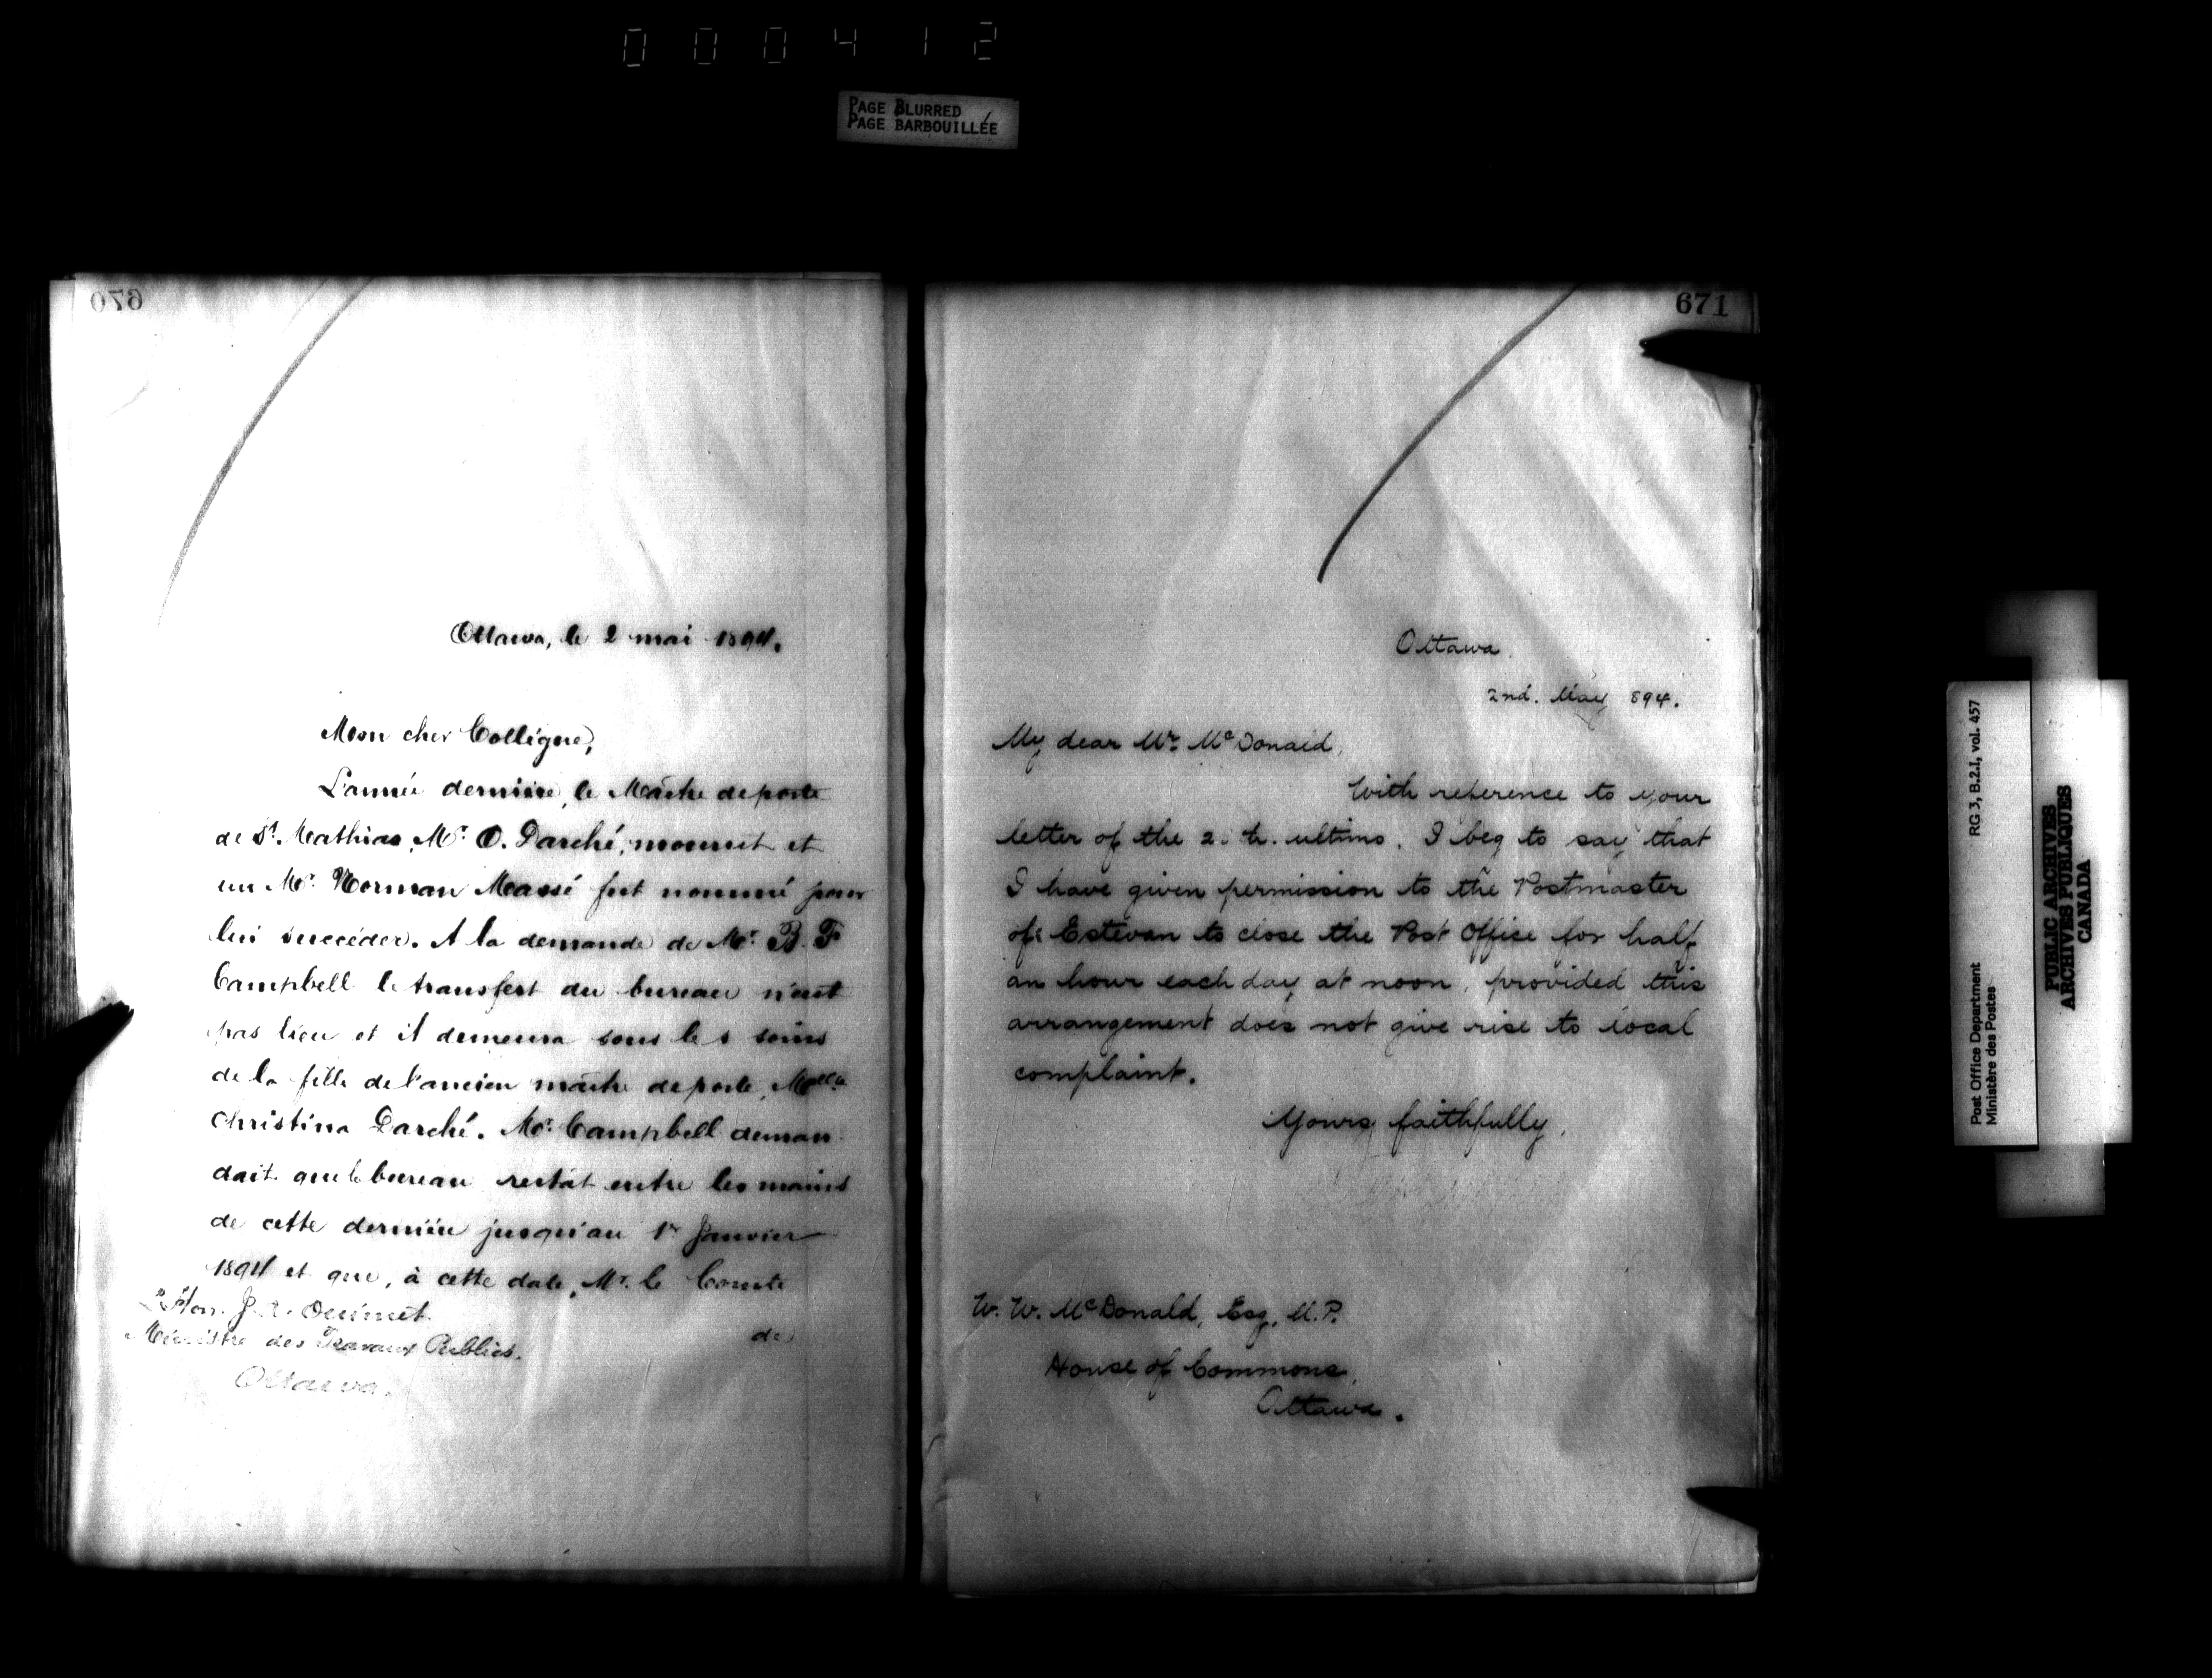 000412
PAGE BLURRED
PAGE BARBOUILLÉE
670
Ottawa, le 2 mai 1894.
Mon cher Collègue,
L'année dernière, le Maître de poste
de St. Mathias, Mr. O. Darché, mourut et
un Mr. Norman Massé fut nommé pour
lui succéder. A la demande de Mr. B. F.
Campbell le transfert du bureau n'eut
pas lieu et il demeura sous les soins
de la fille de l'ancien maître de poste, Melle
Christina Darché. Mr. Campbell deman
dait que le bureau restât entre les mains
de cette dernière jusqu'au 1er Janvier
1894 et que, à cette date, Mr. le Comte
de
L'Hon. J. A. Ouimet
Ministre des Travaux Publics.
Ottawa.
671
Ottawa.
2nd. May 894.
My dear Mr. McDonald,
With reference to your
letter of the ultimo. I beg to say that
I have given permission to the Postmaster
of Estevan to close the Post Office for half
an hour each day at noon, provided this
arrangement does not give rise to local
complaint.
Yours faithfully,
W. W. McDonald, Esq, M.P.
House of Commons,
Ottawa.
Post Office Department
Ministère des Postes
RG 3, B.2.I, vol. 457
PUBLIC ARCHIVES
ARCHIVES PUBLIQUES
CANADA